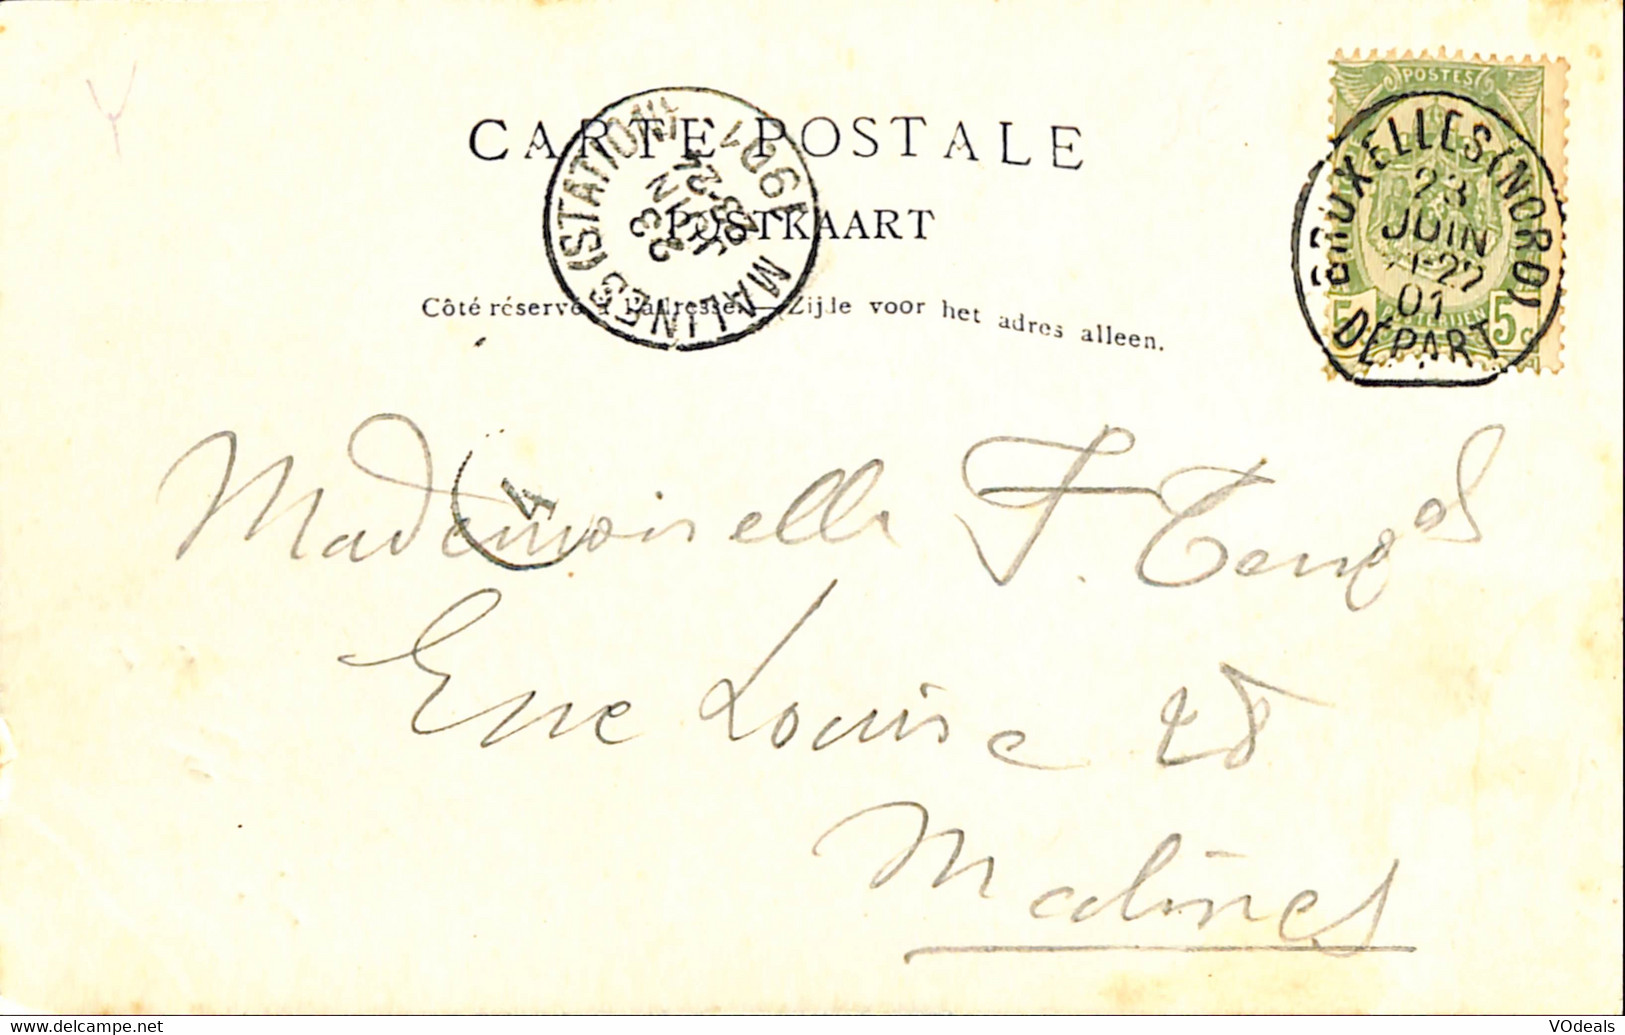 POSTES
CARTE POSTALE
POSTKAART
Côté réservé à l'adresse. — Zijde voor het adres alleen.
BRUXELLES (NORD)
23
JUIN
-22
01
DÉPART
5 5c
MALINES (STATION)
23
JUIN
22-23
1901
4
Mademoiselle F.
Rue Louise 28
Malines
www.delcampe.net
VOdeals